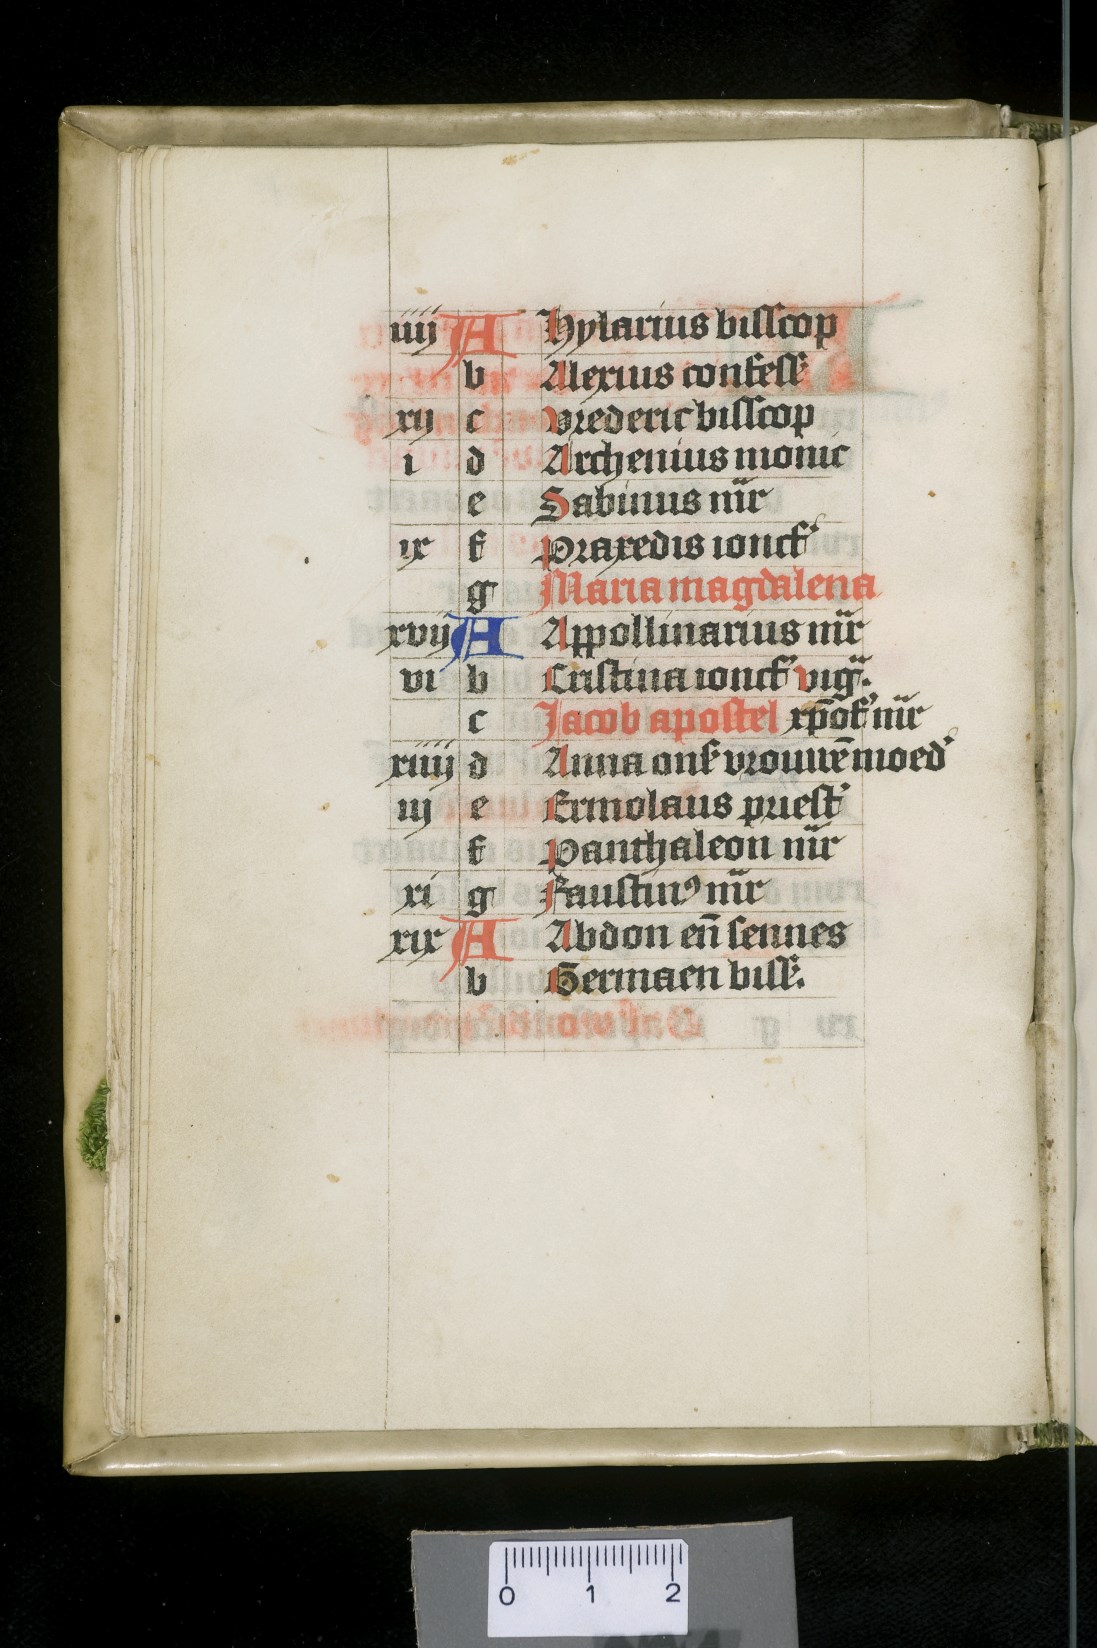 iiij A Hylarius bisscop
b Alexius confess'
xij c vrederic bisscop
i d Archenius monic
e Sabinus mr̄
ix f Praxedis ioncf'
g Maria magdalena
xvij A Appollinarius mr̄
vi b Cristina ioncf' viḡ.
c Jacob apostel xp̄of' mr̄
xiiij d Anna ons' vrouwē moed'
iij e Ermolaus priest'
f Panthaleon mr̄
xi g Faustin⁹ mr̄
xix A Abdon eñ sennes
b Germaen biss'.
0 1 2